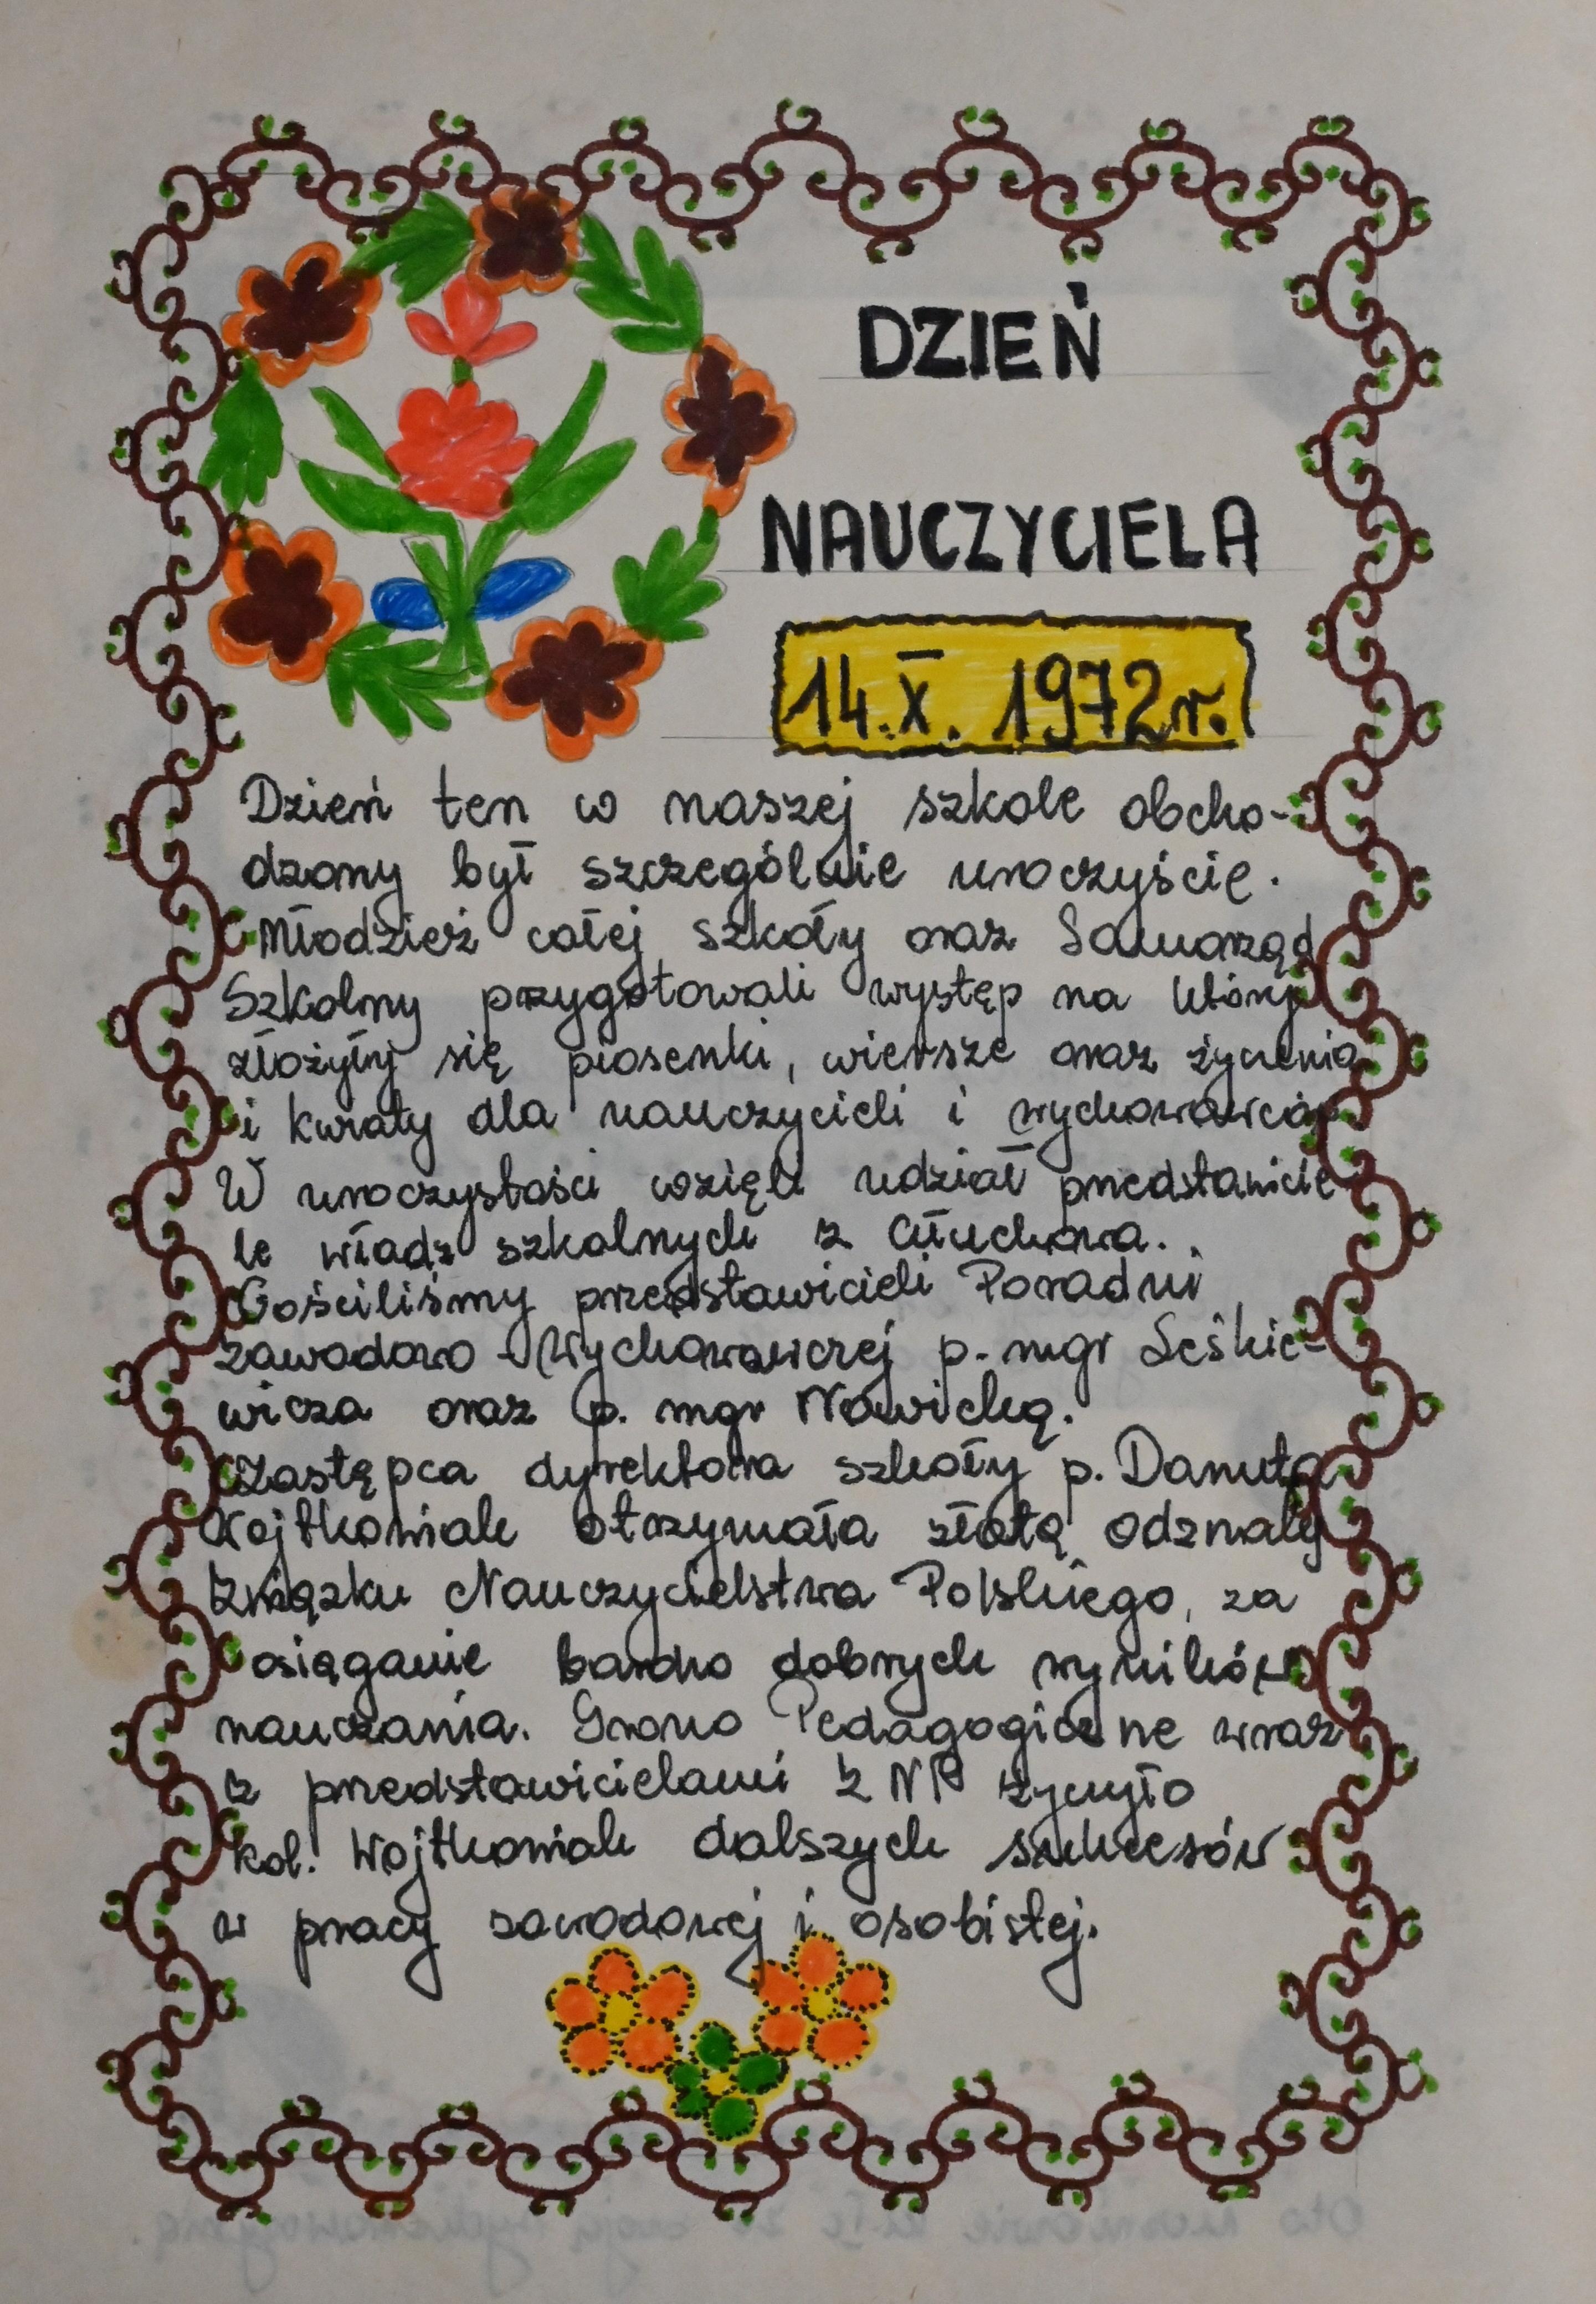 DZIEŃ
NAUCZYCIELA
14.X. 1972r.
Dzień ten w naszej szkole obcho-
dzony był szczególnie uroczyście.
Młodzież całej szkoły oraz Samorząd
Szkolny przygotowali występ na który
złożyły się piosenki, wiersze oraz życzenia
i kwiaty dla nauczycieli i wychowawców
W uroczystości wzięli udział przedstawicie-
le władz szkolnych z Człuchowa.
Gościliśmy przedstawicieli Poradni
zawodowo-Wychowawczej p. mgr Leśkie-
wicza oraz p. mgr Nowicką.
Zastępca dyrektora szkoły p. Danuta
Wojtkowiak otrzymała złotą odznakę
Związku Nauczycielstwa Polskiego, za
osiąganie bardzo dobrych wyników
nauczania. Grono Pedagogiczne wraz
z przedstawicielami ZNP życzyło
kol. Wojtkowiak dalszych sukcesów
w pracy zawodowej i osobistej.